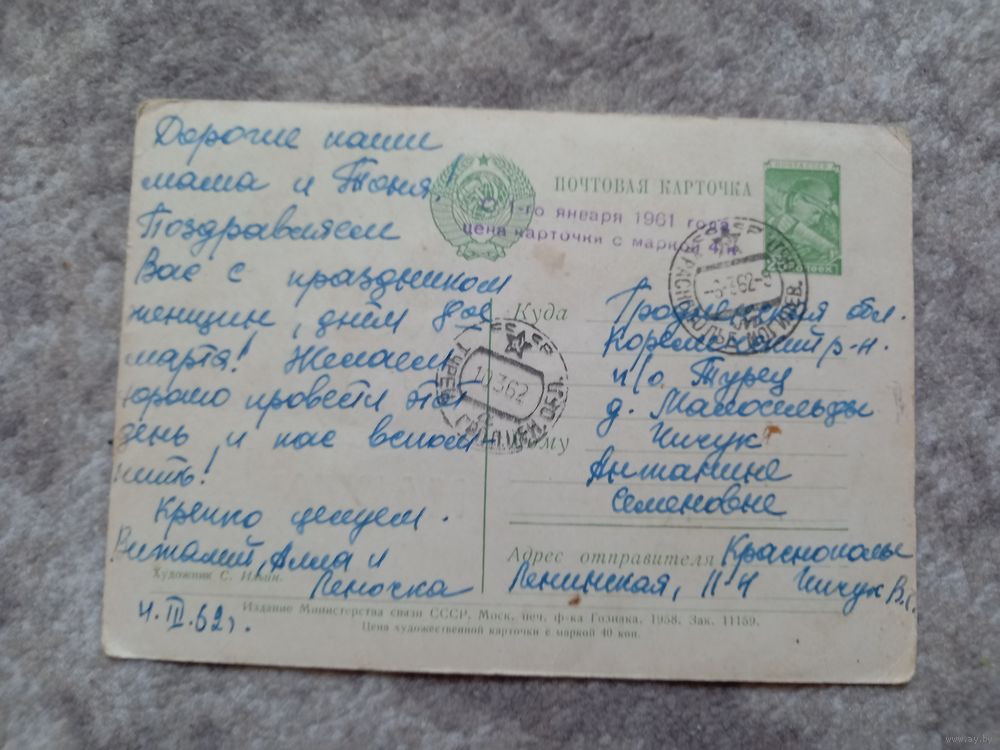 Дорогие наши
мама и Тоня!
Поздравляем
Вас с праздником
женщин, днём 8ое
марта! Желаем
хорошо провести этот
день и нас вспом-
нить!
Крепко целуем.
Виталий, Алла и
Леночка
Художник С. Ильин.
4.III.62г.
ПОЧТОВАЯ КАРТОЧКА
С 1-го января 1961 года
цена карточки с маркой 4 к.
ПОЧТА СССР
КРАСНОПОЛЬЕ МОГИЛЕВ.
62
Куда
Гродненская обл.
Кореличский р-н.
п/о Турец
д. Малосельды
Кому
Чичук
Антанине
Семеновне
ТУРЕЦ ГРОДНЕН.
10 3 62
Адрес отправителя Краснополье
Ленинская, 11-4 Чичук В.С.
Издание Министерства связи СССР. Моск. печ. ф-ка Гознака. 1958. Зак. 11159.
Цена художественной карточки с маркой 40 коп.
www.ay.by